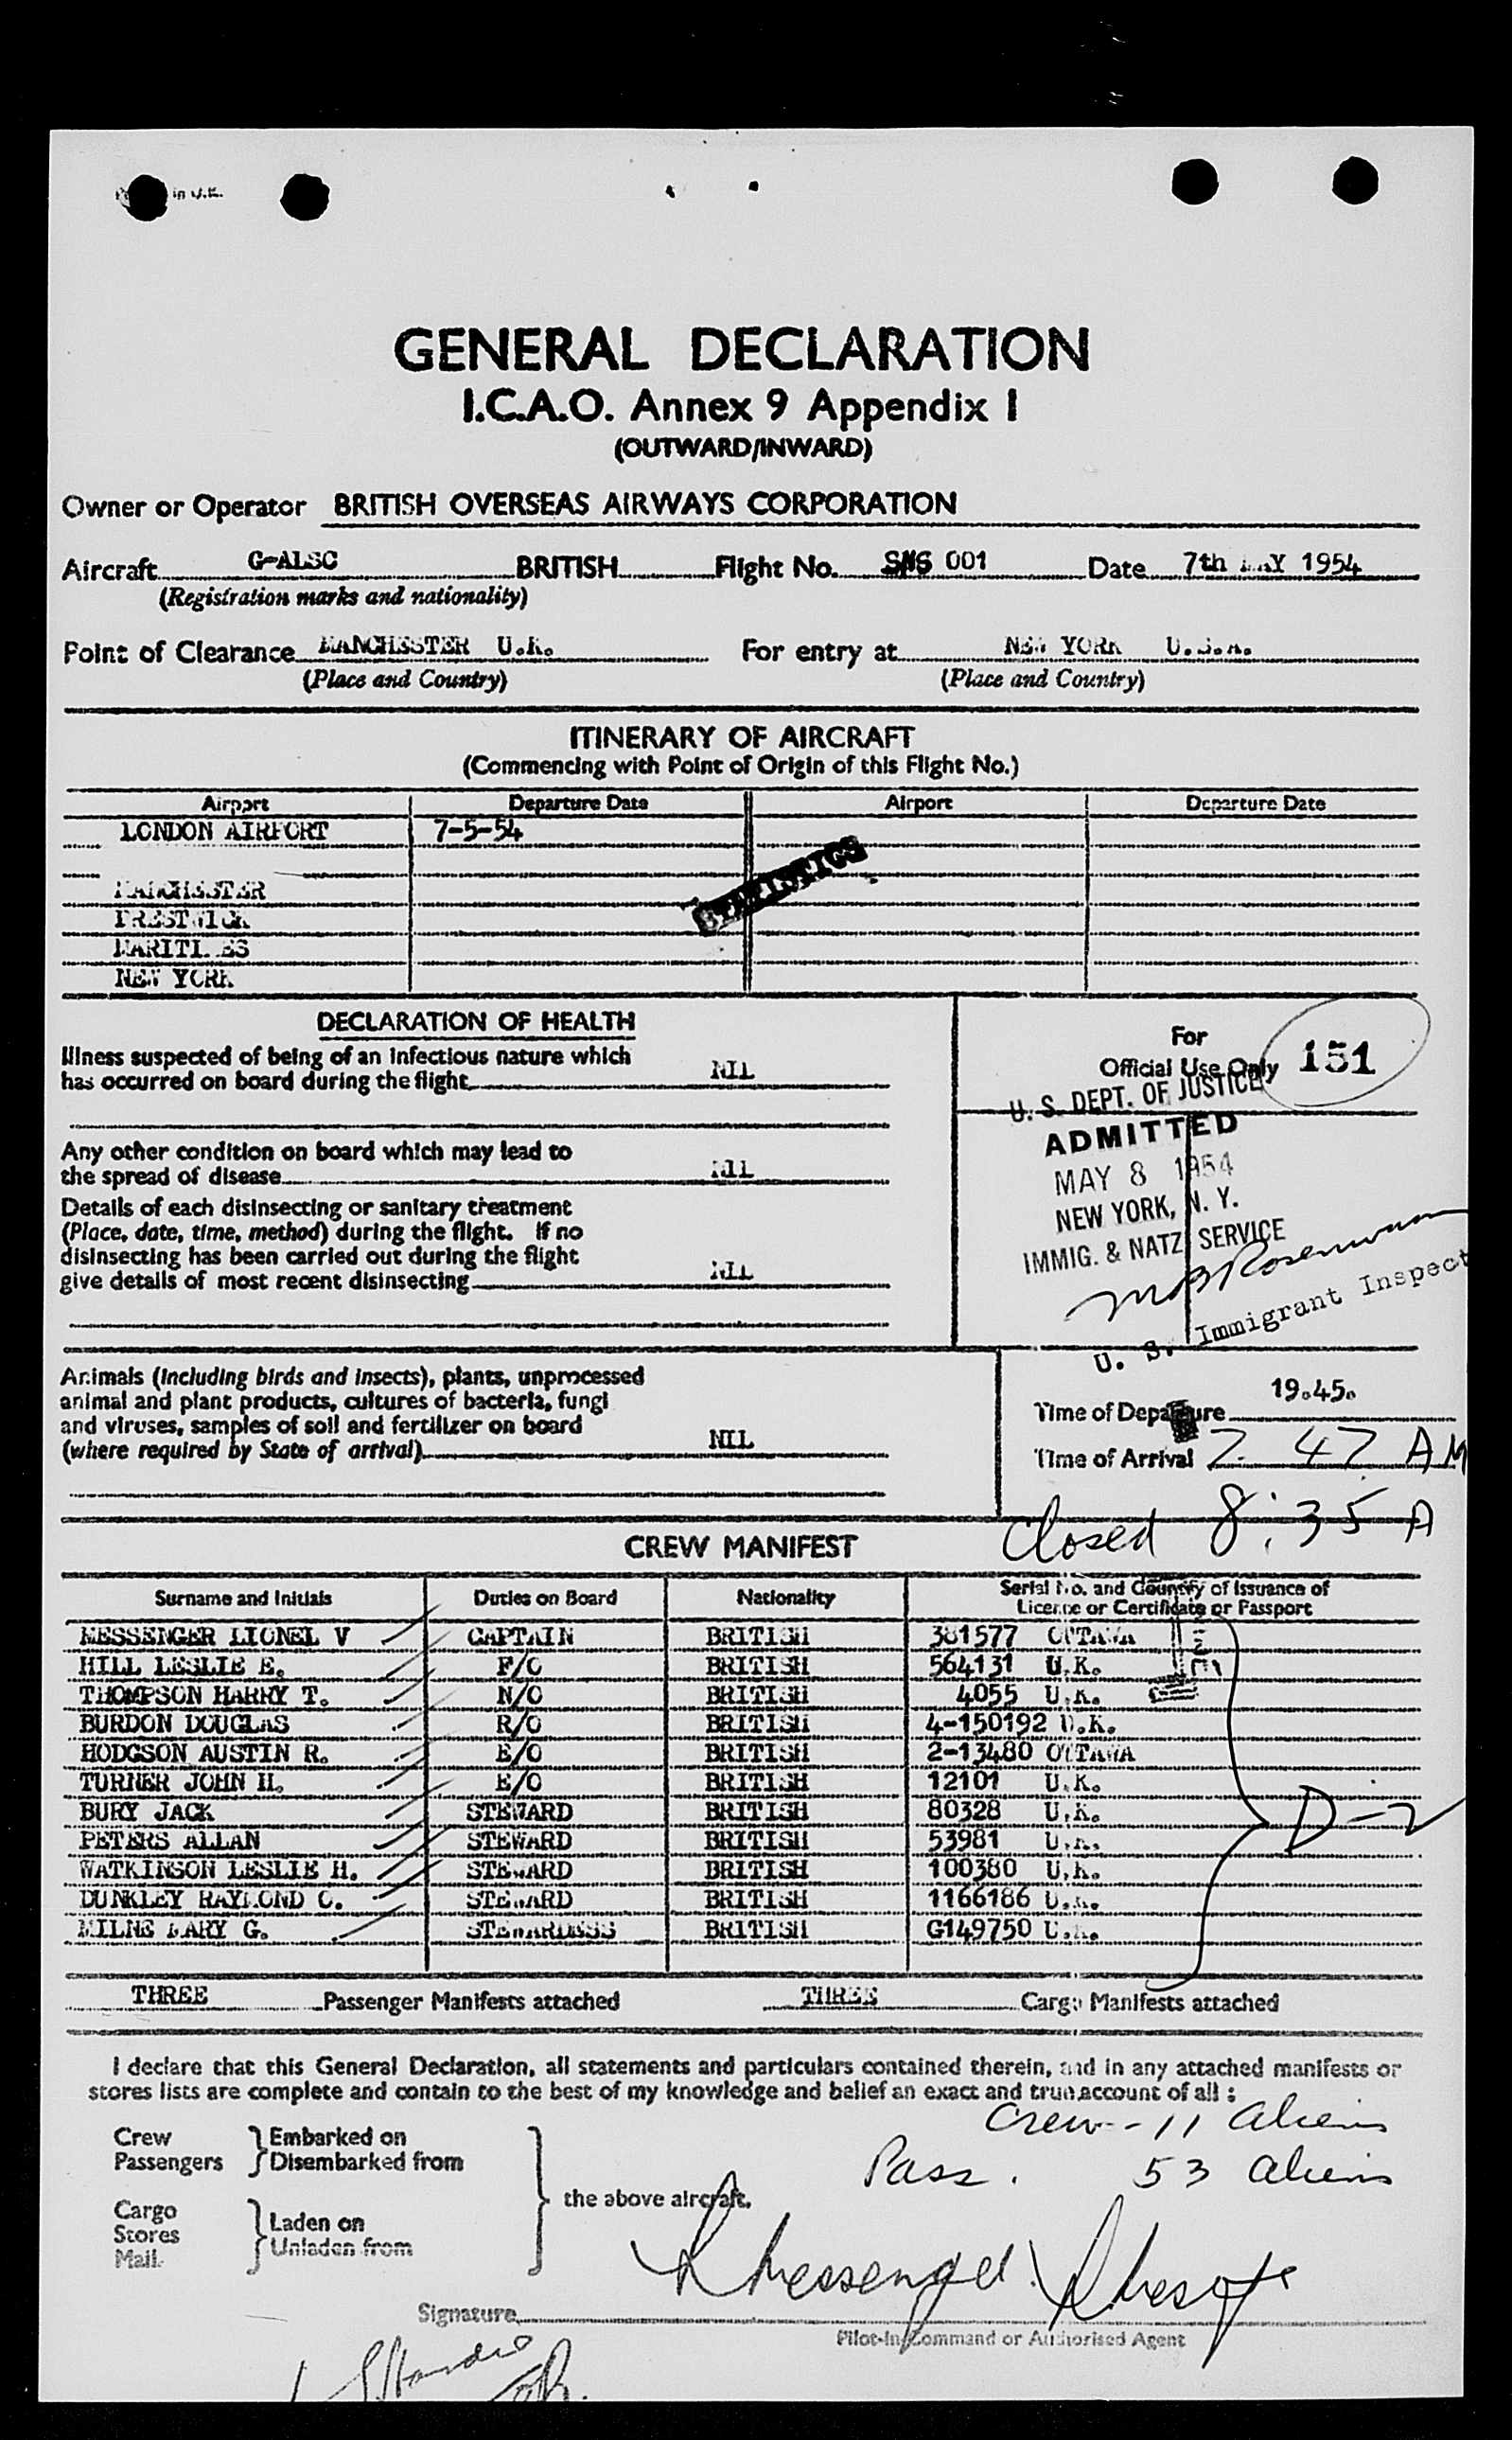 in U.K.
GENERAL DECLARATION
I.C.A.O. Annex 9 Appendix I
(OUTWARD/INWARD)
Owner or Operator BRITISH OVERSEAS AIRWAYS CORPORATION
Aircraft G-ALSC BRITISH Flight No. 001 Date 7th MAY 1954
(Registration marks and nationality)
Point of Clearance MANCHESTER U.K. For entry at NEW YORK U.S.A.
(Place and Country) (Place and Country)
ITINERARY OF AIRCRAFT
(Commencing with Point of Origin of this Flight No.)
Airport Departure Date Airport Departure Date
LONDON AIRPORT 7-5-54
STATISTICS
MANCHESTER
PRESTWICK
MARITIMES
NEW YORK
DECLARATION OF HEALTH
Illness suspected of being of an infectious nature which
has occurred on board during the flight NIL
Any other condition on board which may lead to
the spread of disease NIL
Details of each disinsecting or sanitary treatment
(Place, date, time, method) during the flight. If no
disinsecting has been carried out during the flight
give details of most recent disinsecting NIL
For
Official Use Only 151
U. S. DEPT. OF JUSTICE
ADMITTED
MAY 8 1954
NEW YORK, N. Y.
IMMIG. & NATZ SERVICE
U. S. Immigrant Inspect
Animals (including birds and insects), plants, unprocessed
animal and plant products, cultures of bacteria, fungi
and viruses, samples of soil and fertilizer on board
(where required by State of arrival) NIL
Time of Departure 19.45.
Time of Arrival 7 47 AM
Closed 8:35 A
CREW MANIFEST
Surname and Initials Duties on Board Nationality Serial No. and Country of Issuance of
Licence or Certificate or Passport
MESSENGER LIONEL V CAPTAIN BRITISH 381577 OTTAWA
HILL LESLIE E. F/O BRITISH 564131 U.K.
THOMPSON HARRY T. N/O BRITISH 4055 U.K.
BURDON DOUGLAS R/O BRITISH 4-150192 U.K.
HODGSON AUSTIN R. E/O BRITISH 2-13480 OTTAWA
TURNER JOHN H. E/O BRITISH 12101 U.K.
BURY JACK STEWARD BRITISH 80328 U.K.
PETERS ALLAN STEWARD BRITISH 53981 U.K.
WATKINSON LESLIE H. STEWARD BRITISH 100380 U.K.
DUNKLEY RAYMOND C. STEWARD BRITISH 1166186 U.K.
MILNE MARY G. STEWARDESS BRITISH G149750 U.K.
D-2
THREE Passenger Manifests attached THREE Cargo Manifests attached
I declare that this General Declaration, all statements and particulars contained therein, and in any attached manifests or
stores lists are complete and contain to the best of my knowledge and belief an exact and true account of all :
Crew - 11 aliens
Pass. 53 aliens
Crew Embarked on
Passengers Disembarked from
the above aircraft.
Cargo
Stores Laden on
Mail Unladen from
Messenger
Signature
Pilot-in-Command or Authorised Agent